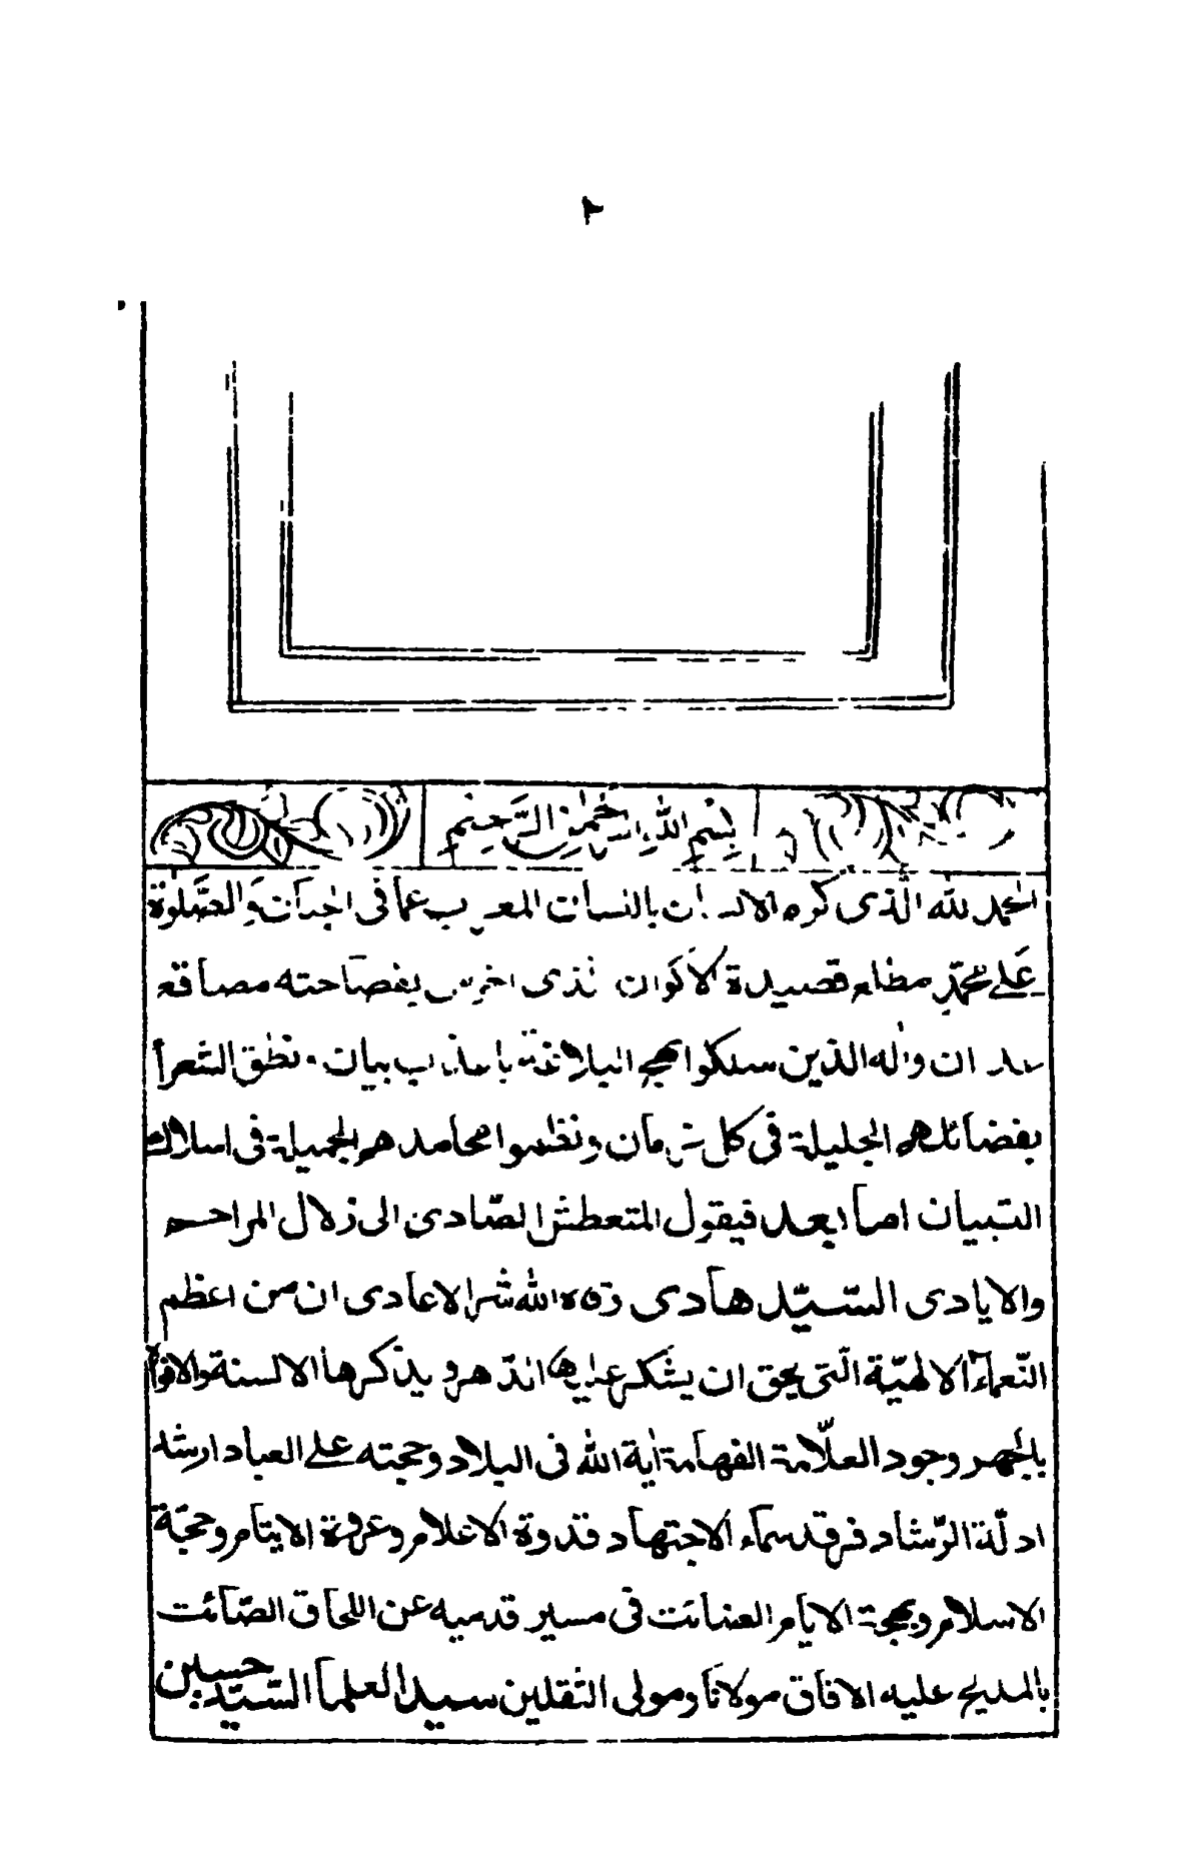 ٢
بِسْمِ اللهِ الرَّحْمٰنِ الرَّحِيْمِ
الحمد لله الّذی کرم بالنسان المعرب عما فی الجنان وَالصَّلٰوة
عَلے محمّدٍ مطلع قصیدة الاکوان الذی اخرس بفصاحته مصاقع
واٰله الذین سلکوا نهج البلاغة باعذب بیان ونطق الشعرأ
بفضائلهم الجلیلة فی کل زمان ونظموا محامدهم الجمیلة فی اسلاك
التبیان امّا بعد فیقول المتعطش الصّادی الی زلال المراحم
والایادی السّیّد هادی وقاه الله شر الاعادی ان من اعظم
النّعماء الالهیّة الّتی یحق ان یشکر علیها الدّهر و یذکرها الالسنة والافواه
بالجهر وجود العلّامة الفهامة اٰیة الله فی البلاد وحجته علے العباد ارشد
ادلّة الرّشاد فرقد سماء الاجتهاد قدوة الاعلام وعروة الایتام وحجّة
الاسلام وبهجة الایام الفائت فی مسیر قدمیه عن اللحاق الصّائت
بالمدیح علیه الافاق مولانا ومولی الثقلین سید العلما السّیّد حسین